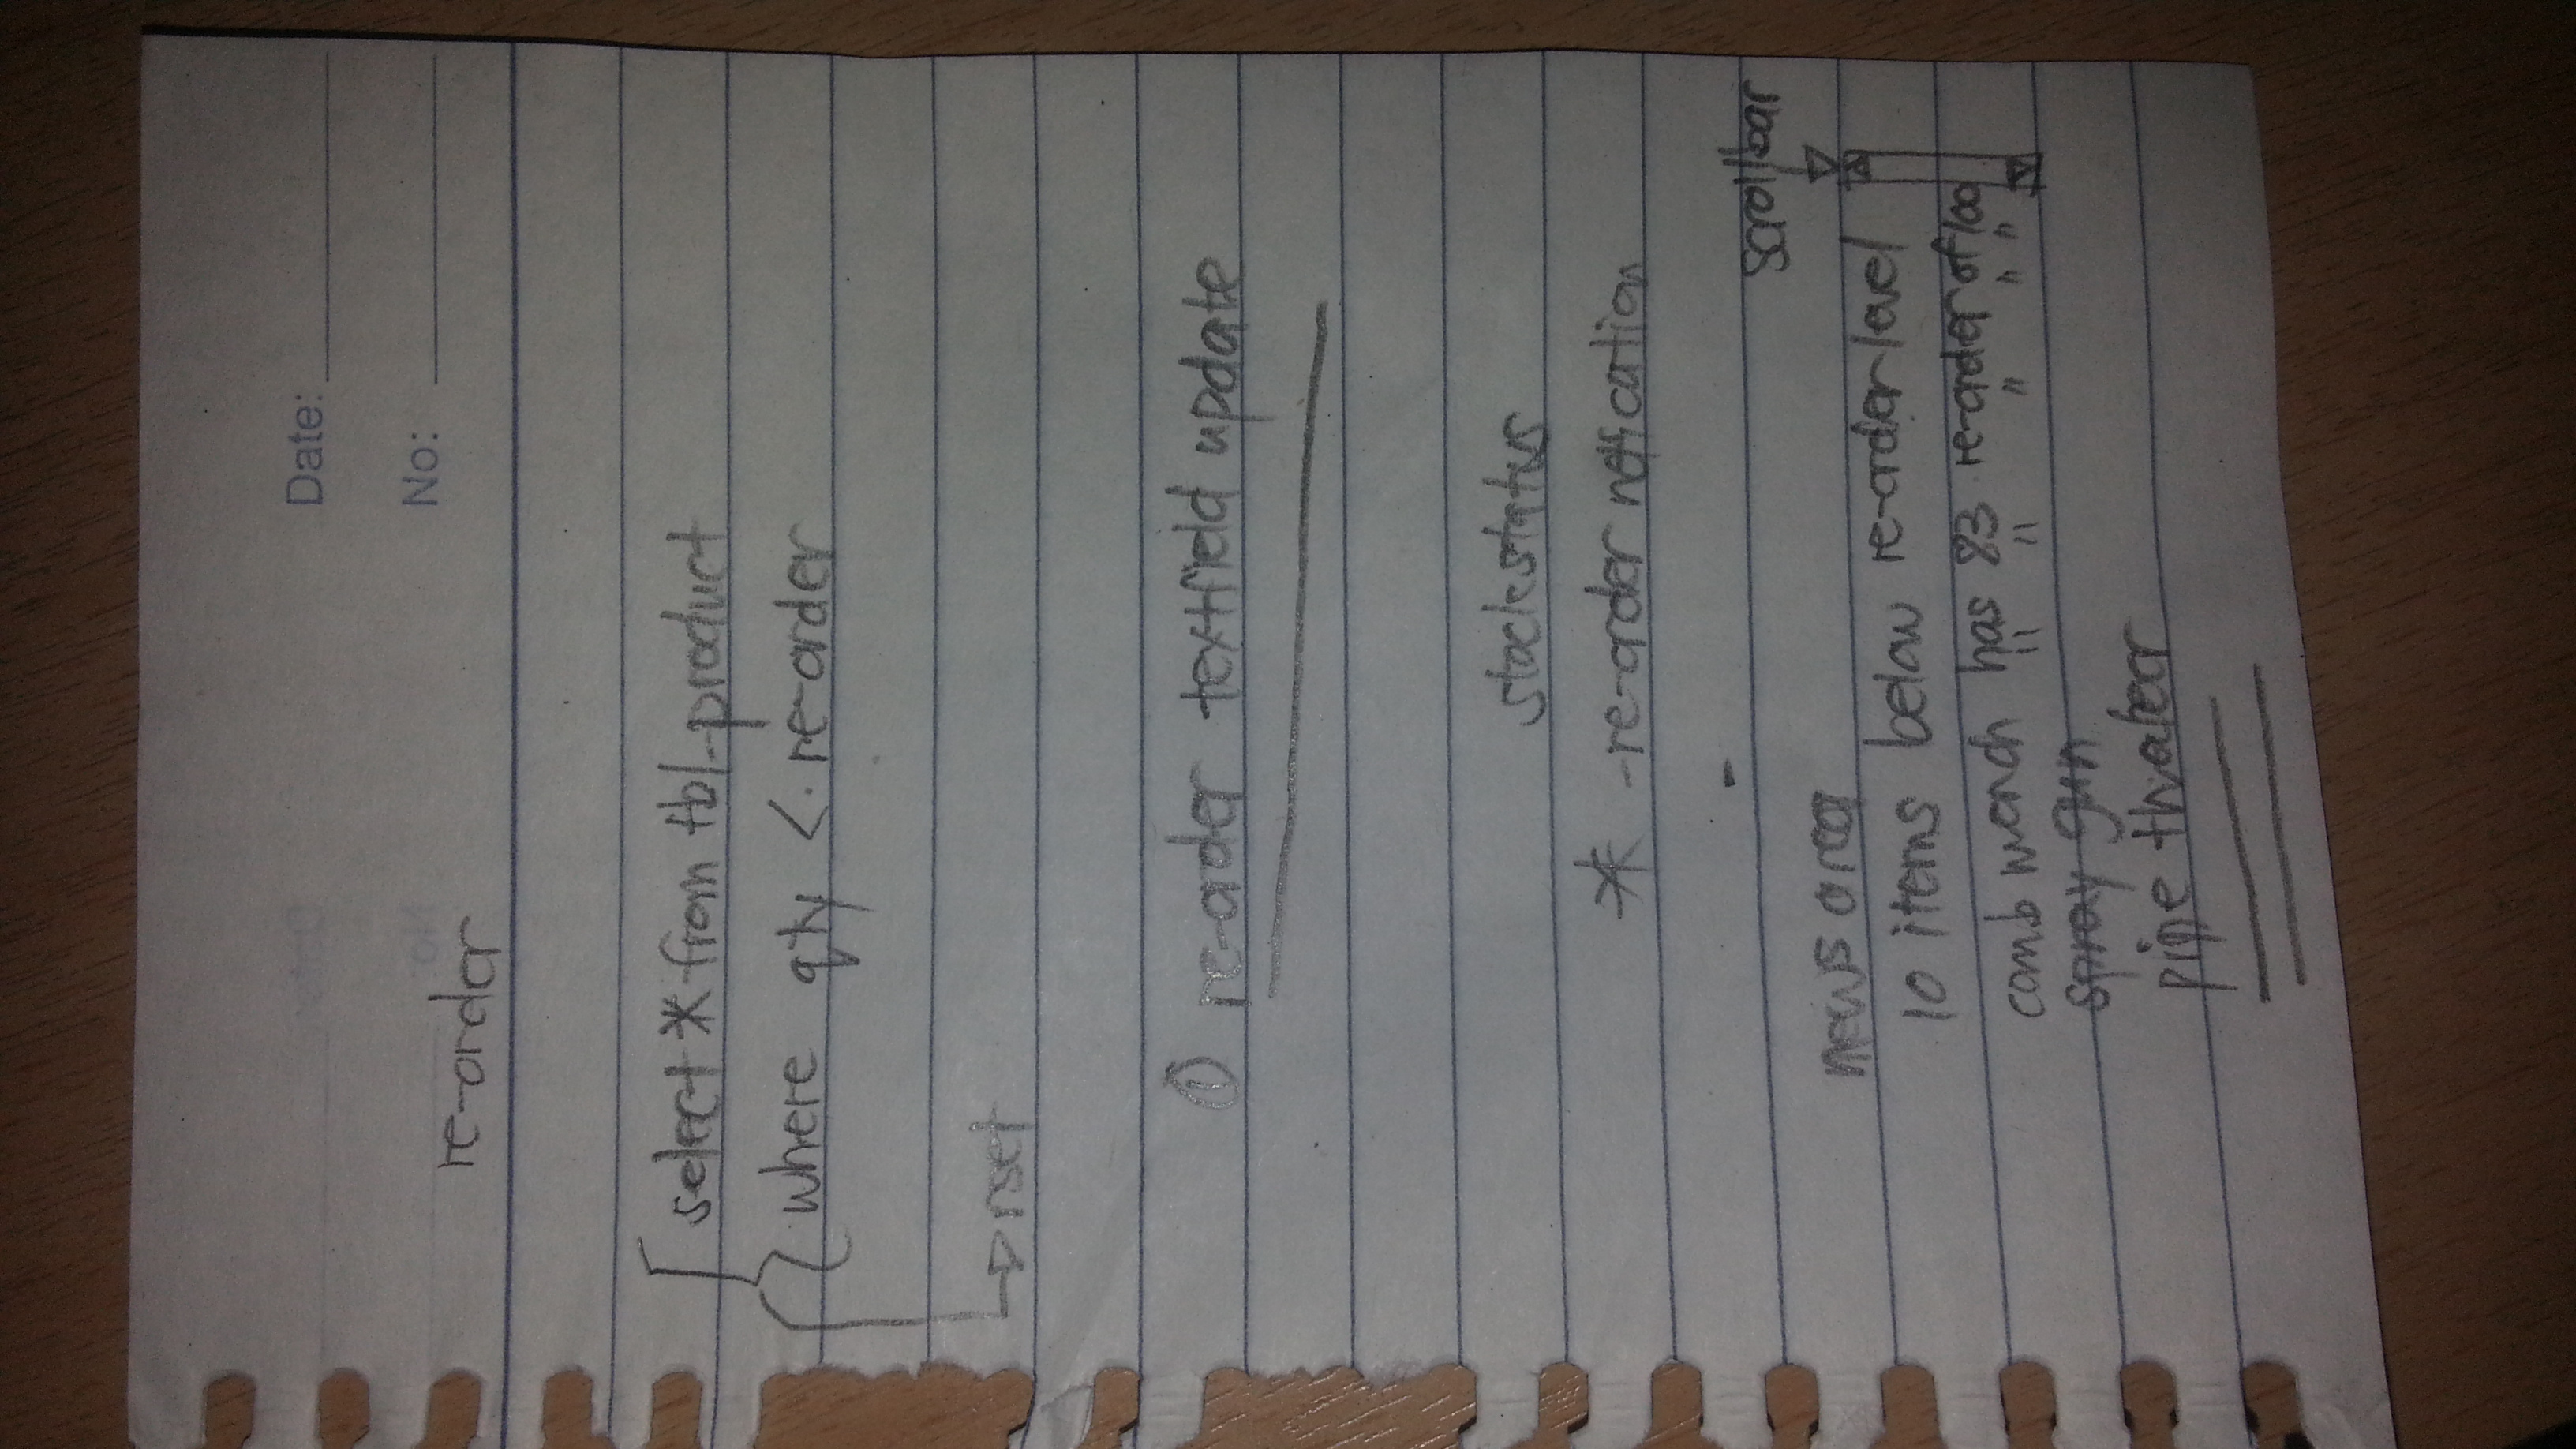 Date:
No:
re-order
select * from tbl_product
where qty < re-order
rset
① re-order textfield update
stock status
* -re-order notification
-
scrollbar
news area
10 items below re-order level
comb wench has 83 re-order of 100
" " " " "
spray gun
pipe